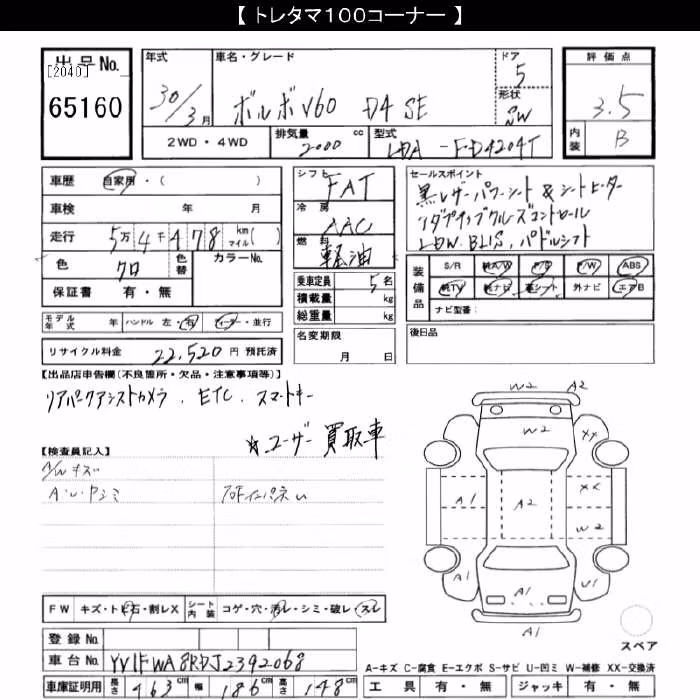 【 トレタマ100コーナー 】
出品No.
[2040]
65160
年式
30/3月
車名・グレード
ボルボV60 D4 SE
ドア
5
形状
SW
評価点
3.5
内装
B
2WD・4WD
排気量
2000 cc
型式
LDA-FD4204T
車歴 自家用・( )
車検 年 月
走行 5万4千478 km マイル( )
色 クロ 色替 カラーNo.
保証書 有・無
シフト
FAT
冷房
AAC
燃料
軽油
乗車定員 5名
積載量 kg
総重量 kg
セールスポイント
黒レザーパワーシート&シートヒーター
アダプティブクルーズコントロール
LDW.BLIS,パドルシフト
装備品
S/R 純A/W P/S P/W ABS
純TV 純ナビ 革シート 外ナビ エアB
ナビ型番:
モデル年式 年 ハンドル 左・右 ディーラー・並行
名変期限
月 日
後日品
リサイクル料金 22,520円 預託済
【出品店申告欄(不良箇所・欠品・注意事項等)】
リアパークアシストカメラ、ETC、スマートキー
☆ユーザー買取車
【検査員記入】
A/Wキズ
A・U・Pシミ
W2 A2
W2 XX
A1 A2 XX
W2
A1 A1 U1
A1
FW キズ・ト石・割レX シート内装 コゲ・穴・汚レ・シミ・破レ・スレ
スペア
登録No.
車台No. YV1FWA8RDJ2392068
車庫証明用 長さ 463cm 幅 186cm 高さ 148cm
A-キズ C-腐食 E-エクボ S-サビ U-凹ミ W-補修 XX-交換済
工具 有・無 ジャッキ 有・無